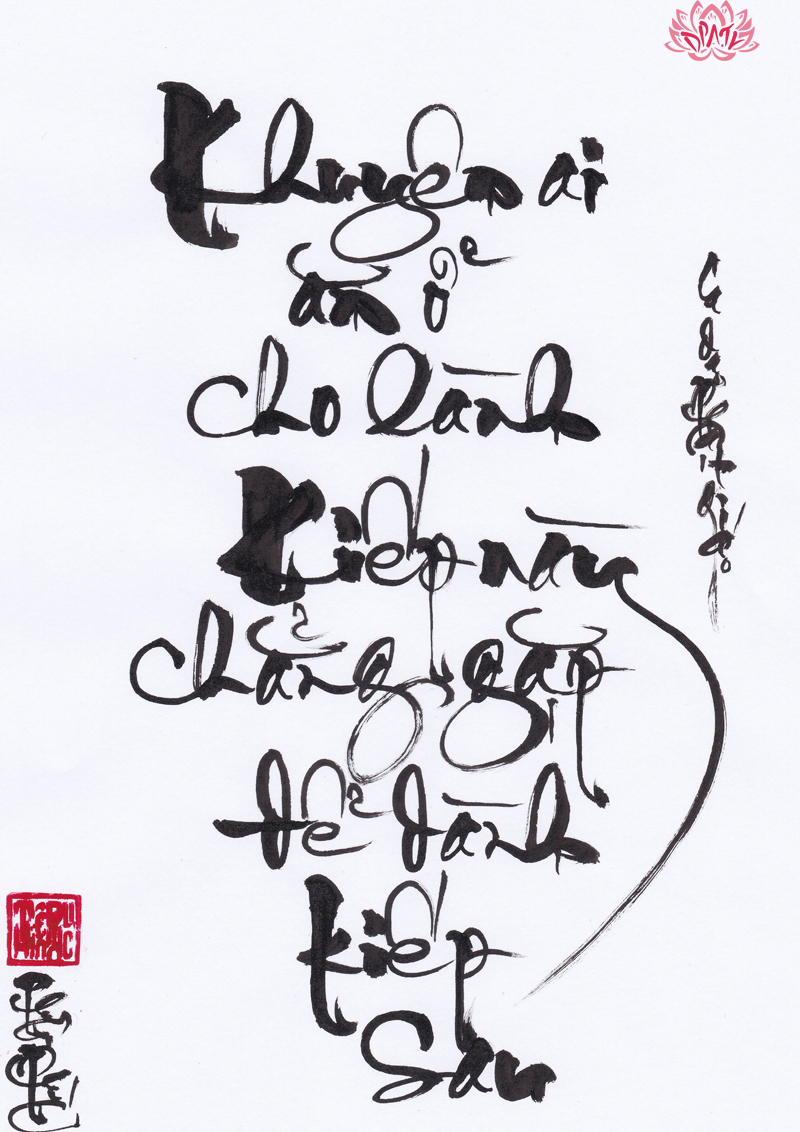 Khuyên ai
ăn ở
cho lành
Kiếp này
chẳng gặp
để dành
kiếp
Sau